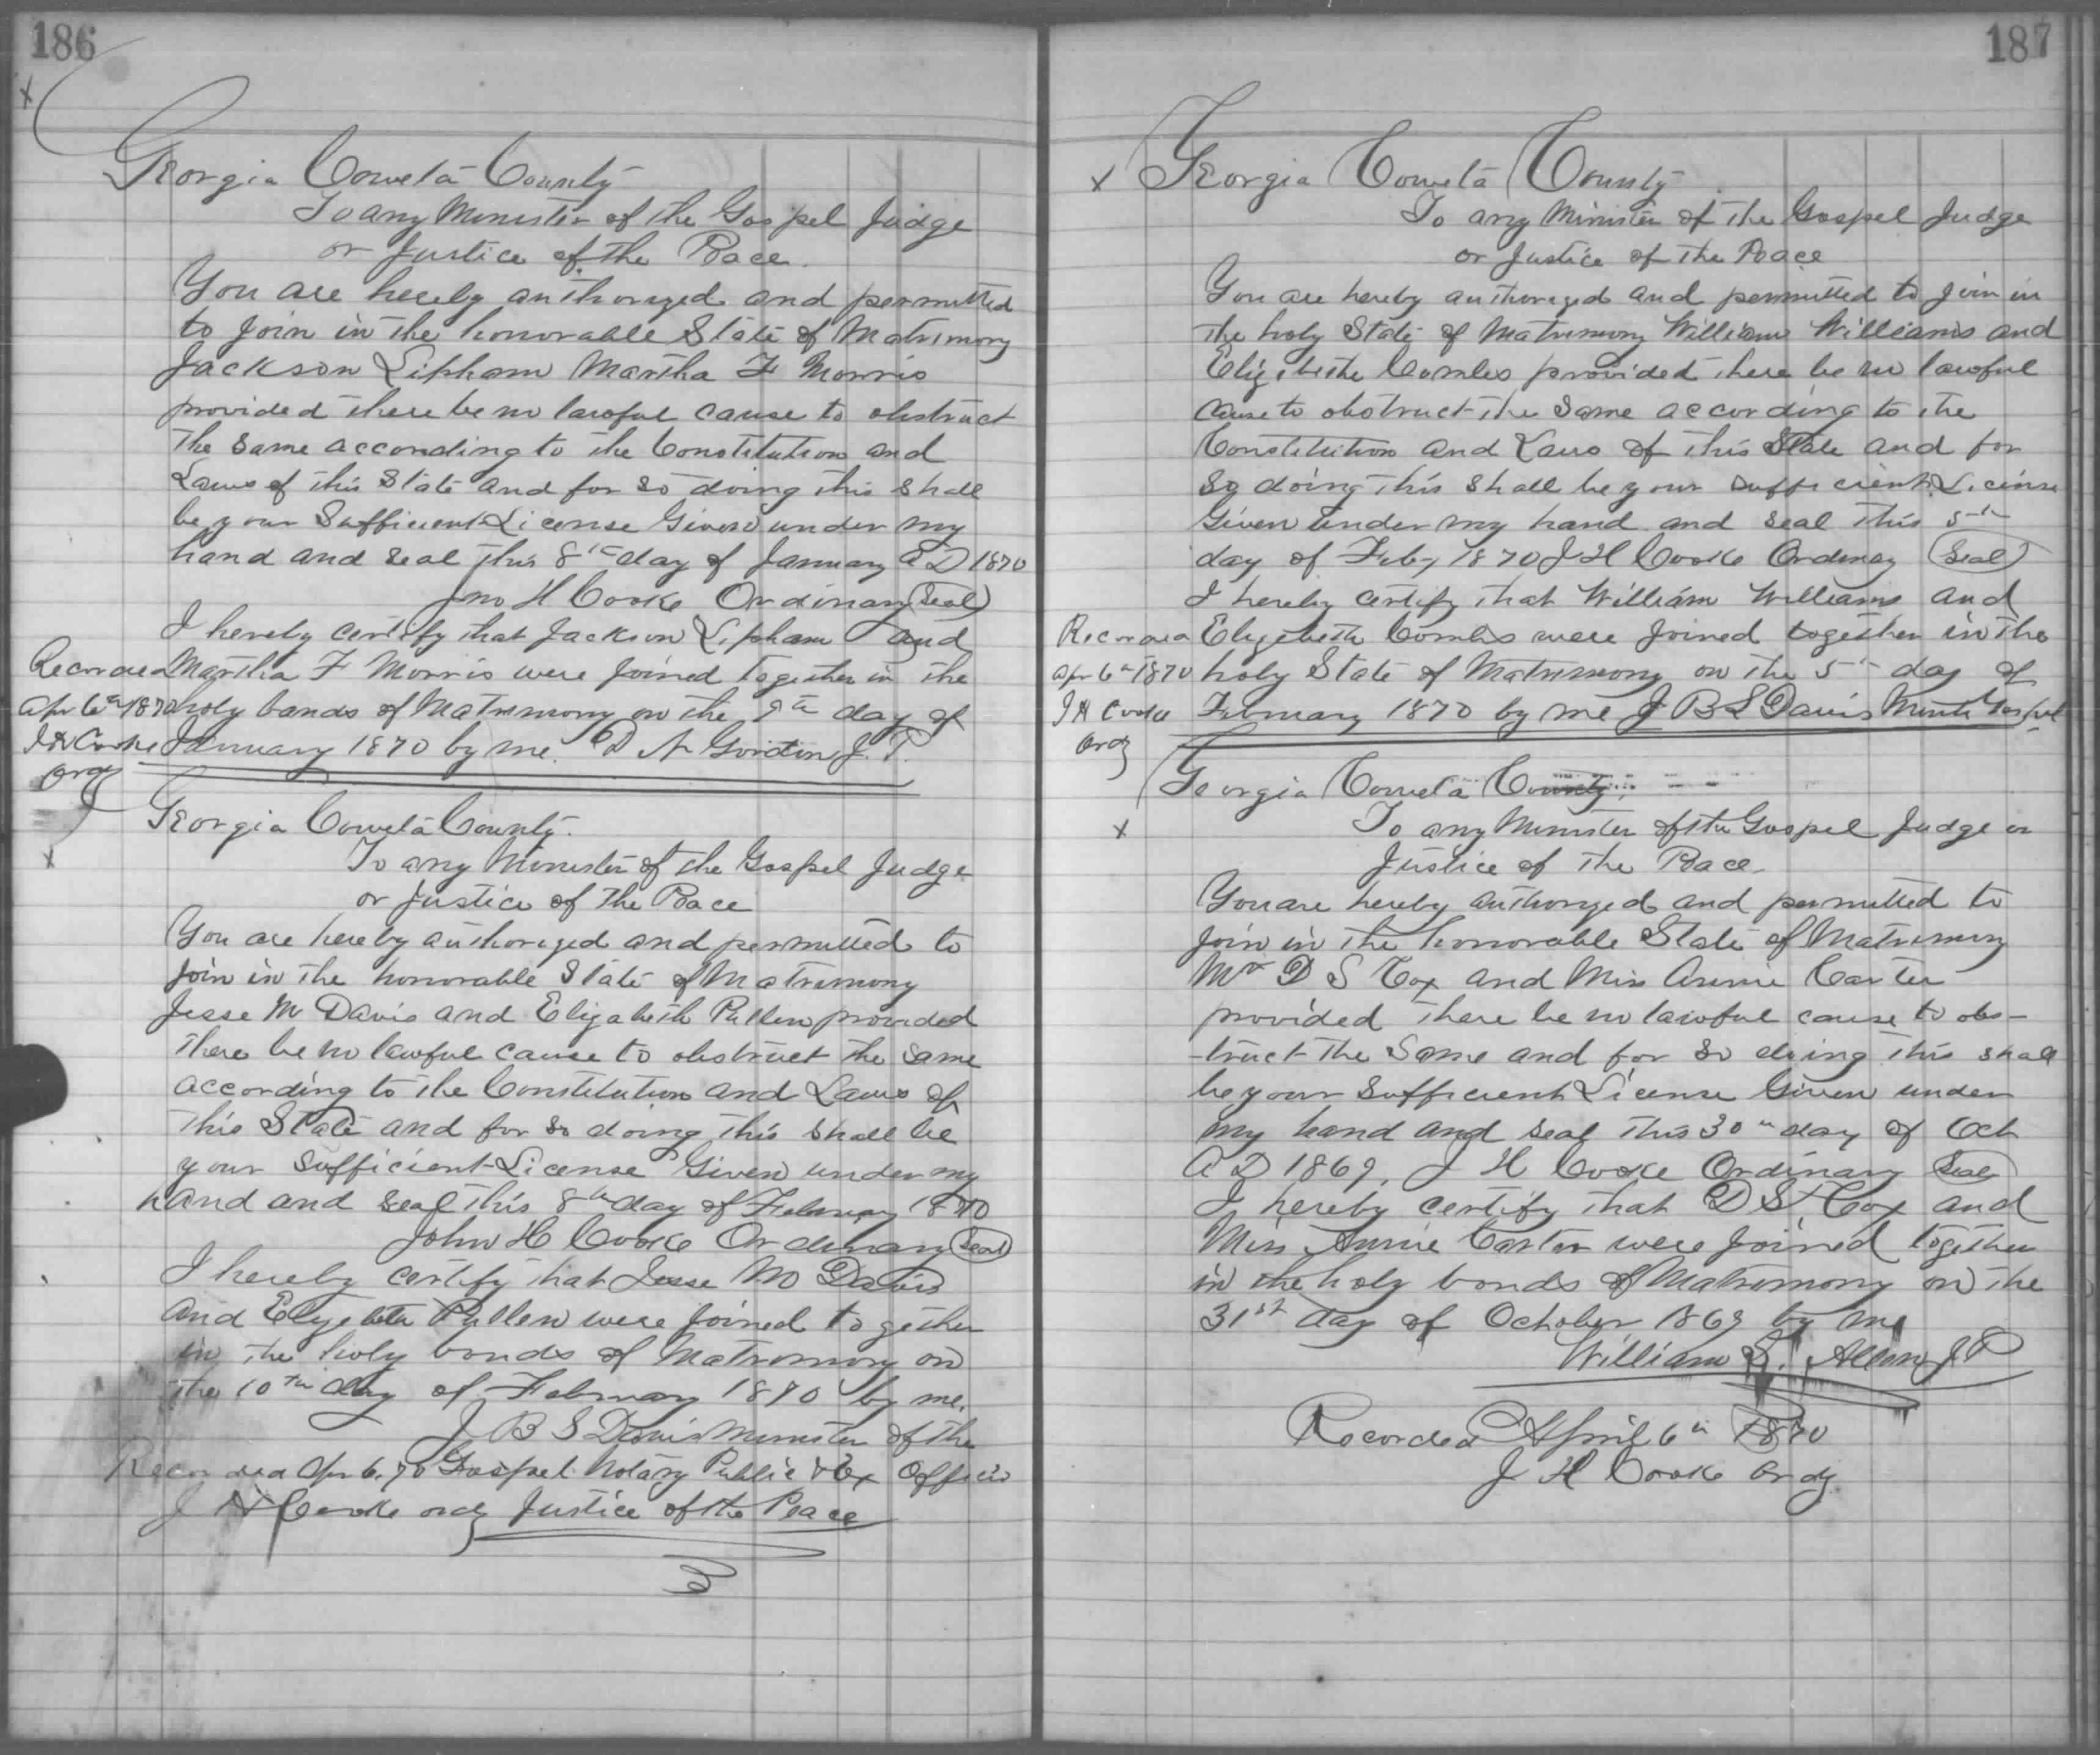 186
Georgia Coweta County
To any Minister of the Gospel Judge
or Justice of the Peace.
You are hereby authorized and permitted
to join in the honorable State of Matrimony
Jackson Lipham Martha F Morris
provided there be no lawful cause to obstruct
the same according to the Constitution and
Laws of this State and for so doing this shall
be your Sufficient License Given under my
hand and seal this 8th day of January AD 1870
Jno H Cooke Ordinary (Seal)
I hereby certify that Jackson Lipham and
Martha F Morris were joined together in the
holy bands of Matrimony on the 9th day of
January 1870 by me. D A Gordon J. P.
Recorded
Apr 6th 1870
J H Cooke
Ordy
Georgia Coweta County.
To any Minister of the Gospel Judge
or Justice of the Peace
You are hereby authorized and permitted to
join in the honorable State of Matrimony
Jesse M Davis and Elizabeth Pullen provided
there be no lawful cause to obstruct the same
according to the Constitution and Laws of
this State and for so doing this shall be
your Sufficient License Given under my
hand and seal this 8th day of February 1870
John H Cooke Ordinary (Seal)
I hereby certify that Jesse M Davis
and Elizebeth Pullen were joined together
in the holy bonds of Matrimony on
the 10th day of February 1870 by me.
J B S Davis Minister of the
Gospel. Notary Public & Ex Officio
Justice of the Peace
Recorded Apr 6, 70
J H Cooke ordy
187
Georgia Coweta County
To any Minister of the Gospel Judge
or Justice of the Peace
You are hereby authorized and permitted to join in
the holy State of Matrimony William Williams and
Elizibethe Combs provided there be no lawful
cause to obstruct the same according to the
Constitution and Laws of this State and for
so doing this shall be your sufficient License
Given under my hand and seal this 5th
day of Feby 1870 J H Cooke Ordinary (Seal)
I hereby certify that William Williams and
Elizebeth Combs were joined together in the
holy State of Matrimony on the 5th day of
February 1870 by me J B S Davis Minstr Gospel
Recorded
Apr 6th 1870
J H Cooke
Ordy
Georgia Coweta County.
To any Minister of the Gospel Judge or
Justice of the Peace.
You are hereby authorized and permitted to
join in the honorable State of Matrimony
Mr D S Cox and Miss Annie Carter
provided there be no lawful cause to obs-
-truct the Same and for so doing this shall
be your sufficient License Given under
my hand and seal this 30th day of Oct
AD 1869, J H Cooke Ordinary (Seal)
I hereby certify that D S Cox and
Miss Annie Carter were joined together
in the holy bonds of Matrimony on the
31st day of October 1869 by me
William S. Allen J P
Recorded April 6th 1870
J H Cooke Ordy